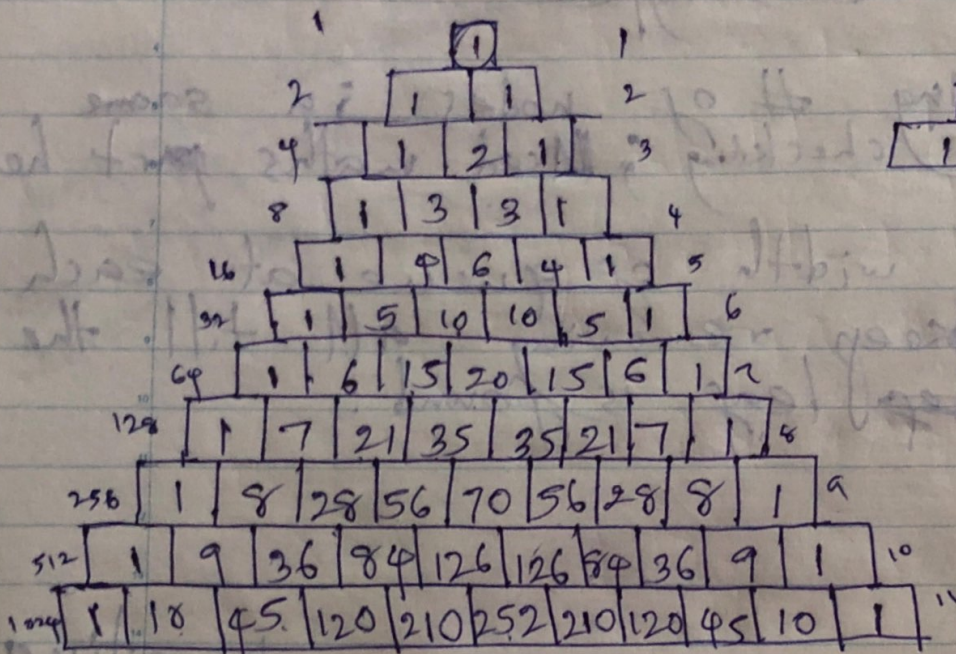 1 1 1
2 1 1 2
4 1 2 1 3 1
8 1 3 3 1 4
16 1 4 6 4 1 5
32 1 5 10 10 5 1 6
64 1 6 15 20 15 6 1 7
128 1 7 21 35 35 21 7 1 8
256 1 8 28 56 70 56 28 8 1 9
512 1 9 36 84 126 126 84 36 9 1 10
1024 1 10 45 120 210 252 210 120 45 10 1 11